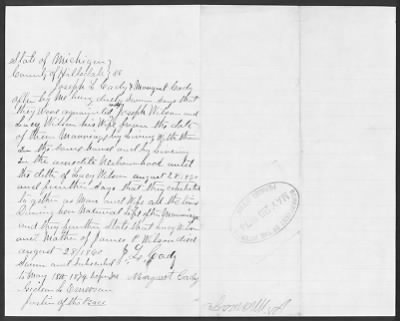 State of Michigan
County of Hillsdale ss
Joseph L Cady & Margret Cady
after by me being duly Sworn Says that
they were acquainted Joseph Wilson and
Lucy Wilson his Wife from the date
of there Marriage by Living With them
in the Same house and by Living
in the Neborhood until
the deth of Lucy Wilson august 28 1860
and further Says that they cohabited
to gether as Man and Wife all the time
During her Natural life after Marriage
and they further State that Lucy Wilson
was Mother of James P Wilson died
august 28/1860 J L Cady
Sworn and Subscribed to
May 18th 1874 before me Margret Cady
Gideon L
Justice of the Peace
MAY 29